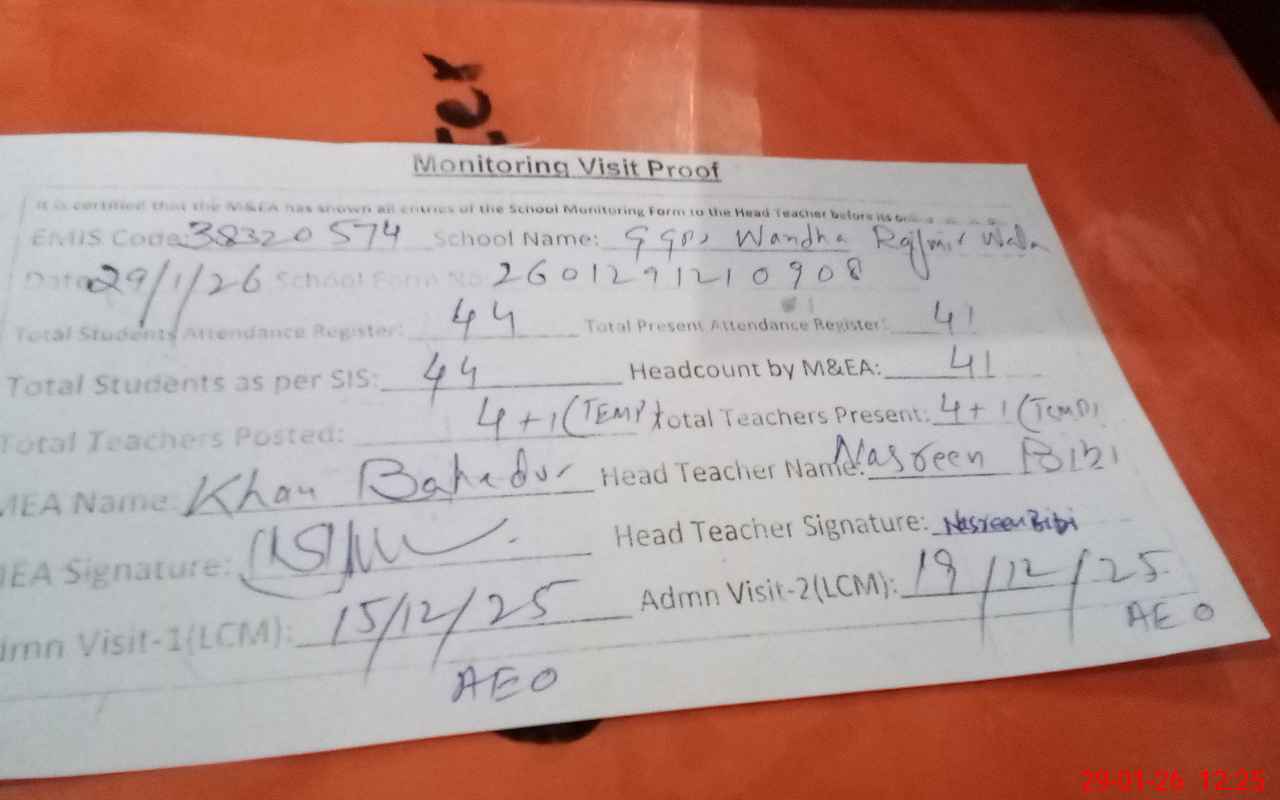 Monitoring Visit Proof
It is certified that the M&EA has shown all entries of the School Monitoring Form to the Head Teacher before its
EMIS Code: 38320574 School Name: GGPS Wandha Wala
Date: 29/1/26 School Form No: 2601291210908
Total Students Attendance Register: 44 Total Present Attendance Register: 41
Total Students as per SIS: 44 Headcount by M&EA: 41
Total Teachers Posted: 4+1(TEMP) Total Teachers Present: 4+1(TEMP)
MEA Name: Khan Bahadur Head Teacher Name: Nasreen Bibi
MEA Signature: Head Teacher Signature: Nasreen Bibi
Admn Visit-1(LCM): 15/12/25 Admn Visit-2(LCM): 19/12/25
AEO AEO
29-01-26 12:25